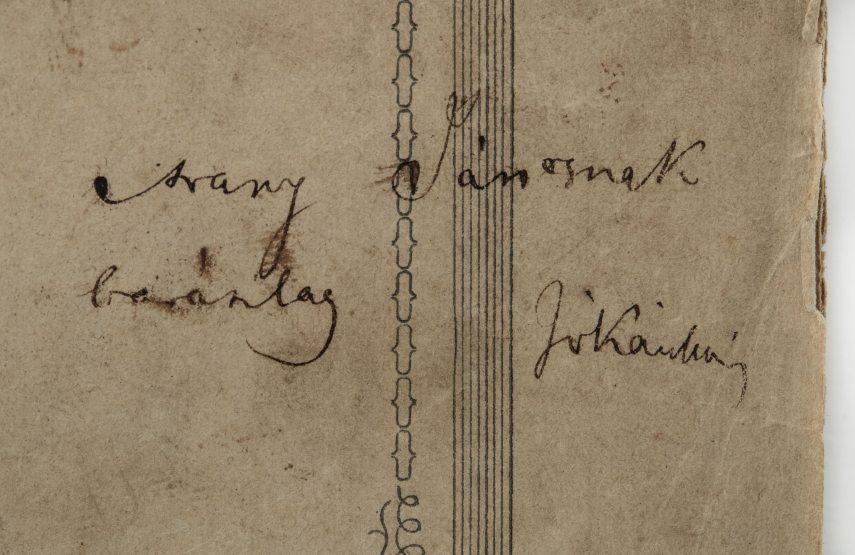 Arany Jánosnak
barátilag Jókai Mór